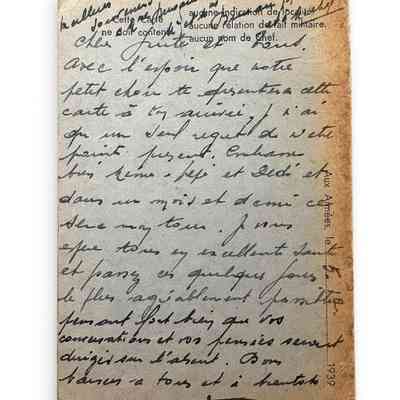 meilleurs souvenirs
Cette carte
ne doit contenir
aucune indication de
aucune relation de fait militaire,
aucun nom de Chef.
Cher et
Avec l'espoir que votre
petit chou te présentera cette
carte à ton arrivée, j'ai
qu'un seul regret de n'être
point présent. Embrasse
bien mémé - pépé et Dédé et
dans un mois et demi ce
sera mon tour. Je vous
espère tous en excellente santé
et passez ces quelques jours
le plus agréablement possible
pensant fort bien que vos
conversations et vos pensées seront
dirigées sur l'absent. Bons
baisers a tous et à bientôt
Aux Armées, le
1939